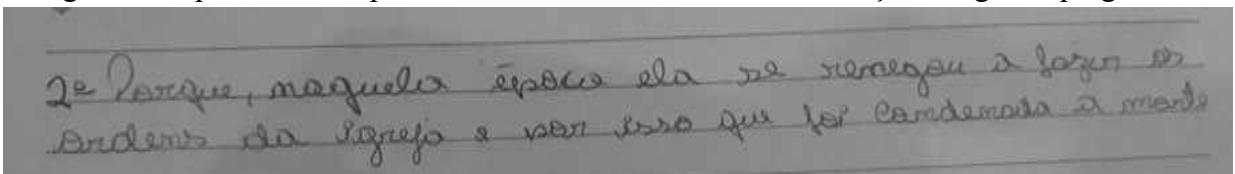 2º Porque, naquela época ela se renegou a fazer as
ordens da igreja e por isso que foi condenada a morte